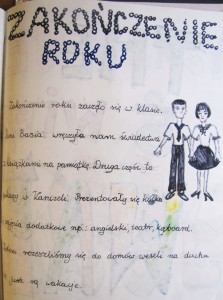 ZAKOŃCZENIE
ROKU
Zakończenie roku zaczęło się w klasie.
Pani Basia wręczyła nam świadectwa
z książkami na pamiątkę. Druga część to
w Kanzeli. Prezentowały się kółka
zajęcia dodatkowe np.: angielski, teatr, keyboard.
rozeszliśmy się do domów weseli na duchu
już są wakacje.